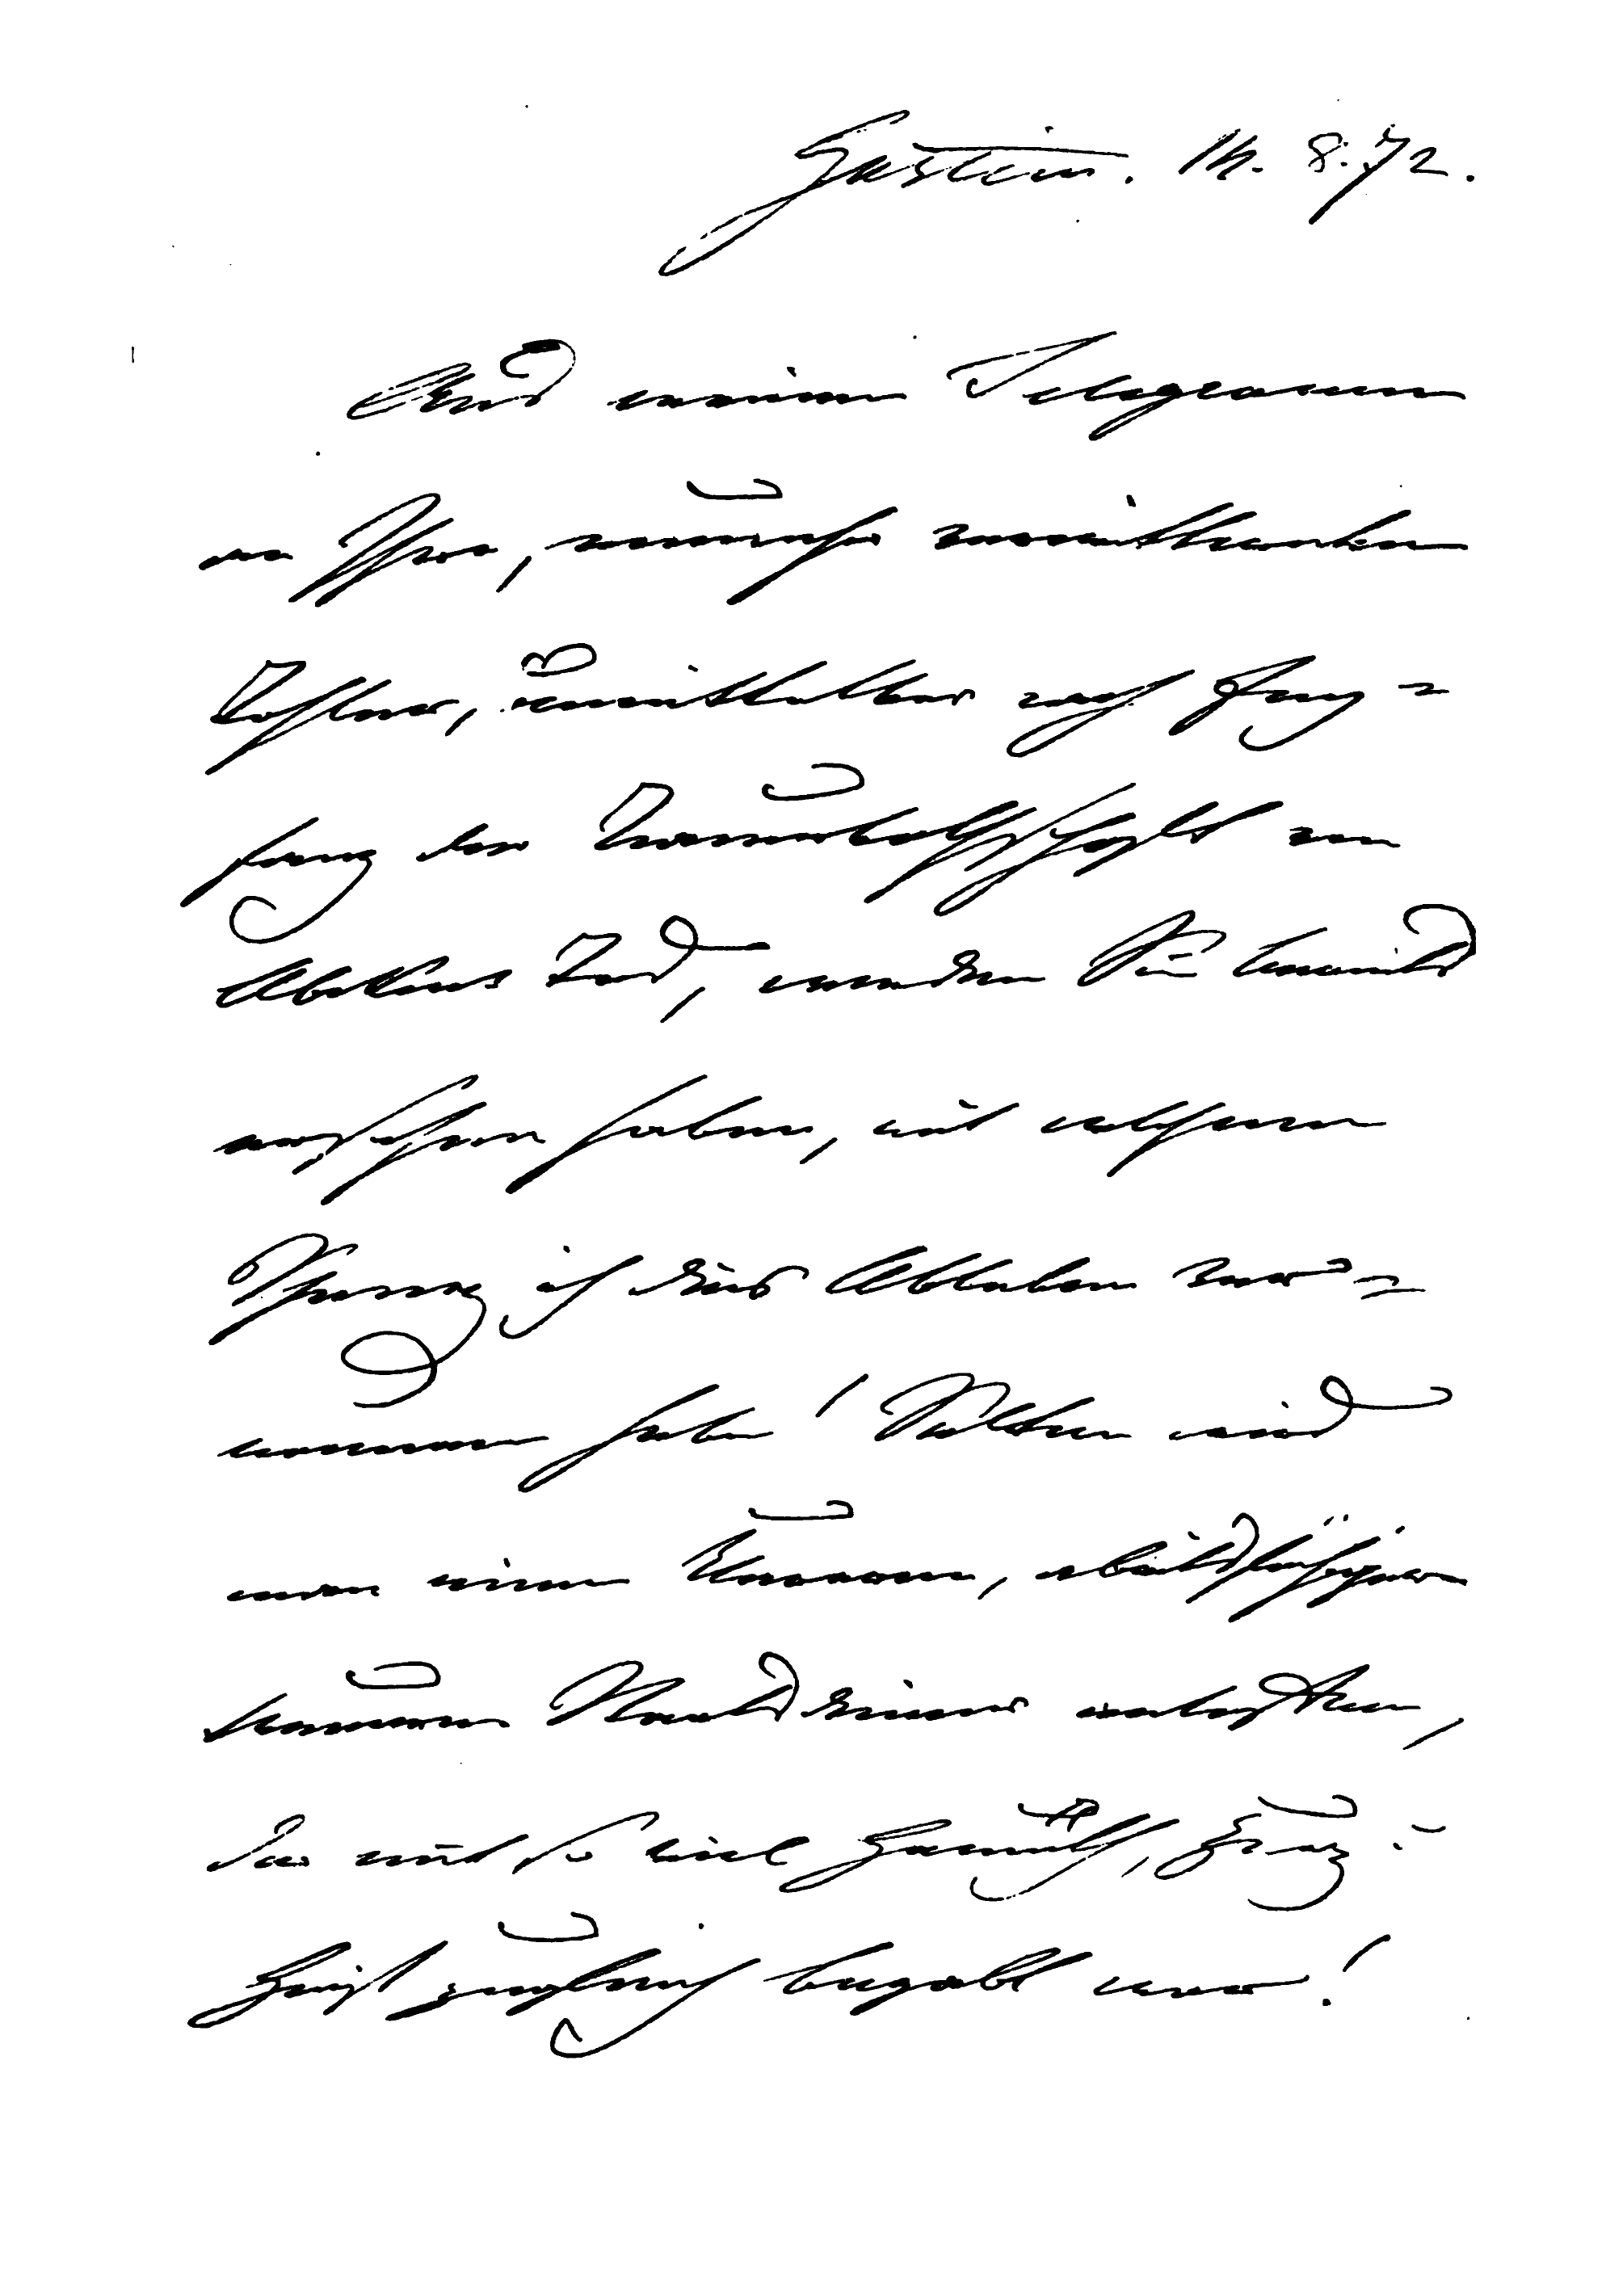 Gastein. 14. 8. 72.
Aus meinem Telegramm
an Ihre, nunmehr verwittwete
Tochter, unmittelbar nach Emp=
fang der Trauerbothschaft von
Abekens Tod, werden Sie bereits
ersehen haben, mit welchem
Schmerz ich dies Ableben ver=
nommen habe! Selten wird
man einen arbeitsfähigeren
Staatsdiener antreffen,
der mit so viel Gemüth, u
Geist zugleich begabt war!